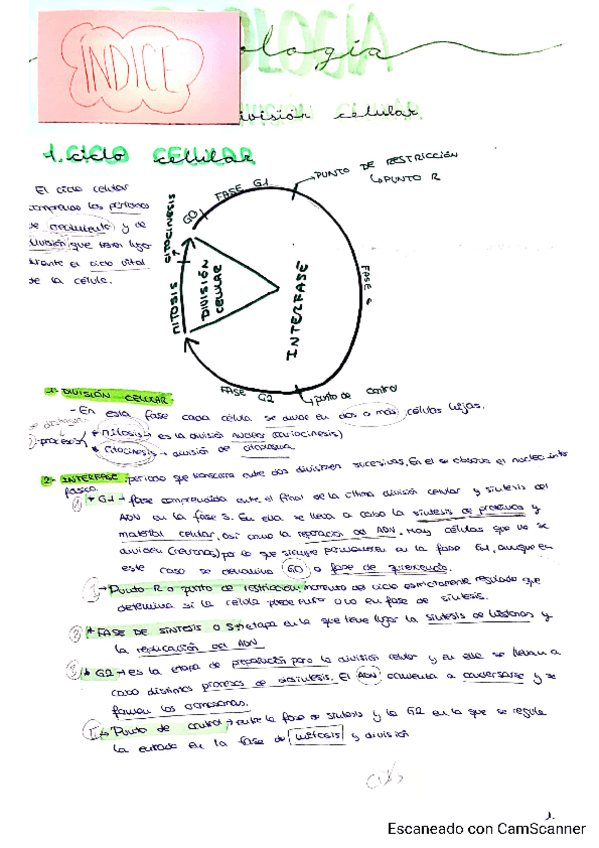 BIOLOGÍA
ÍNDICE
división celular
1. ciclo celular
El ciclo celular
comprende los períodos
de crecimiento y de
división que tienen lugar
durante el ciclo vital
de la célula.
PUNTO DE RESTRICCIÓN
PUNTO R
FASE G1
G0
CITOCINESIS
MITOSIS
DIVISIÓN
CELULAR
INTERFASE
FASE
FASE G2
punto de control
1- DIVISIÓN CELULAR
- En esta fase cada célula se divide en dos o más células hijas.
2 procesos
* Mitosis → es la división nuclear (cariocinesis)
* Citocinesis → división de citoplasma
2- INTERFASE: período que transcurre entre dos divisiones sucesivas. En él se observa el núcleo interfásico.
* G1 → fase comprendida entre el final de la última división celular y síntesis del
ADN en la fase S. En ella se lleva a cabo la síntesis de proteínas y
material celular, así como la reparación del ADN. Hay células que no se
dividen (neuronas) por lo que siempre permanecen en la fase G1, aunque en
este caso se denomina G0 o fase de
→ Punto R o punto de restricción: momento del ciclo estrictamente regulado que
determina si la célula puede entrar o no en fase de síntesis.
* FASE DE SÍNTESIS o S → etapa en la que tiene lugar la síntesis de histonas y
la replicación del ADN
* G2 → es la etapa de preparación para la división celular y en ella se llevan a
cabo distintos procesos de biosíntesis. El ADN comienza a condensarse y se
forman los cromosomas.
→ Punto de control → entre la fase de síntesis y la G2 en la que se regula
la entrada en la fase de mitosis y división
1.
Escaneado con CamScanner